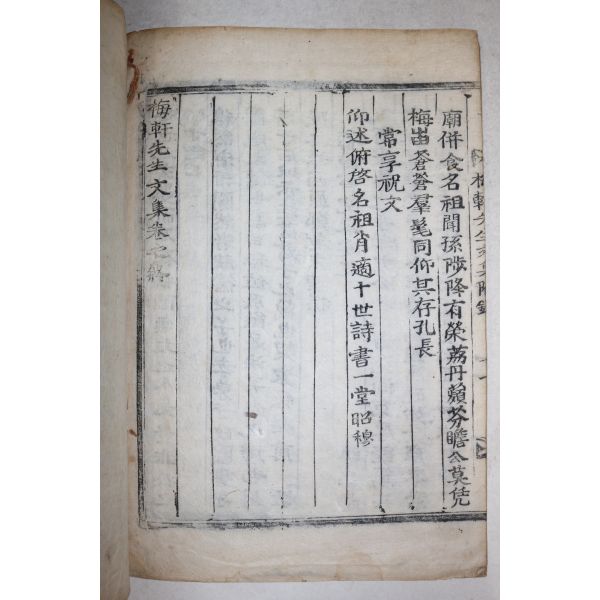 梅軒先生文集附錄
廟併食名祖聞孫陟降有榮荔丹蘋芬瞻公莫凭
梅峀蒼蒼羣髦同仰其存孔長
常享祝文
仰述俯啓名祖肖適十世詩書一堂昭穆
梅軒先生文集卷之終